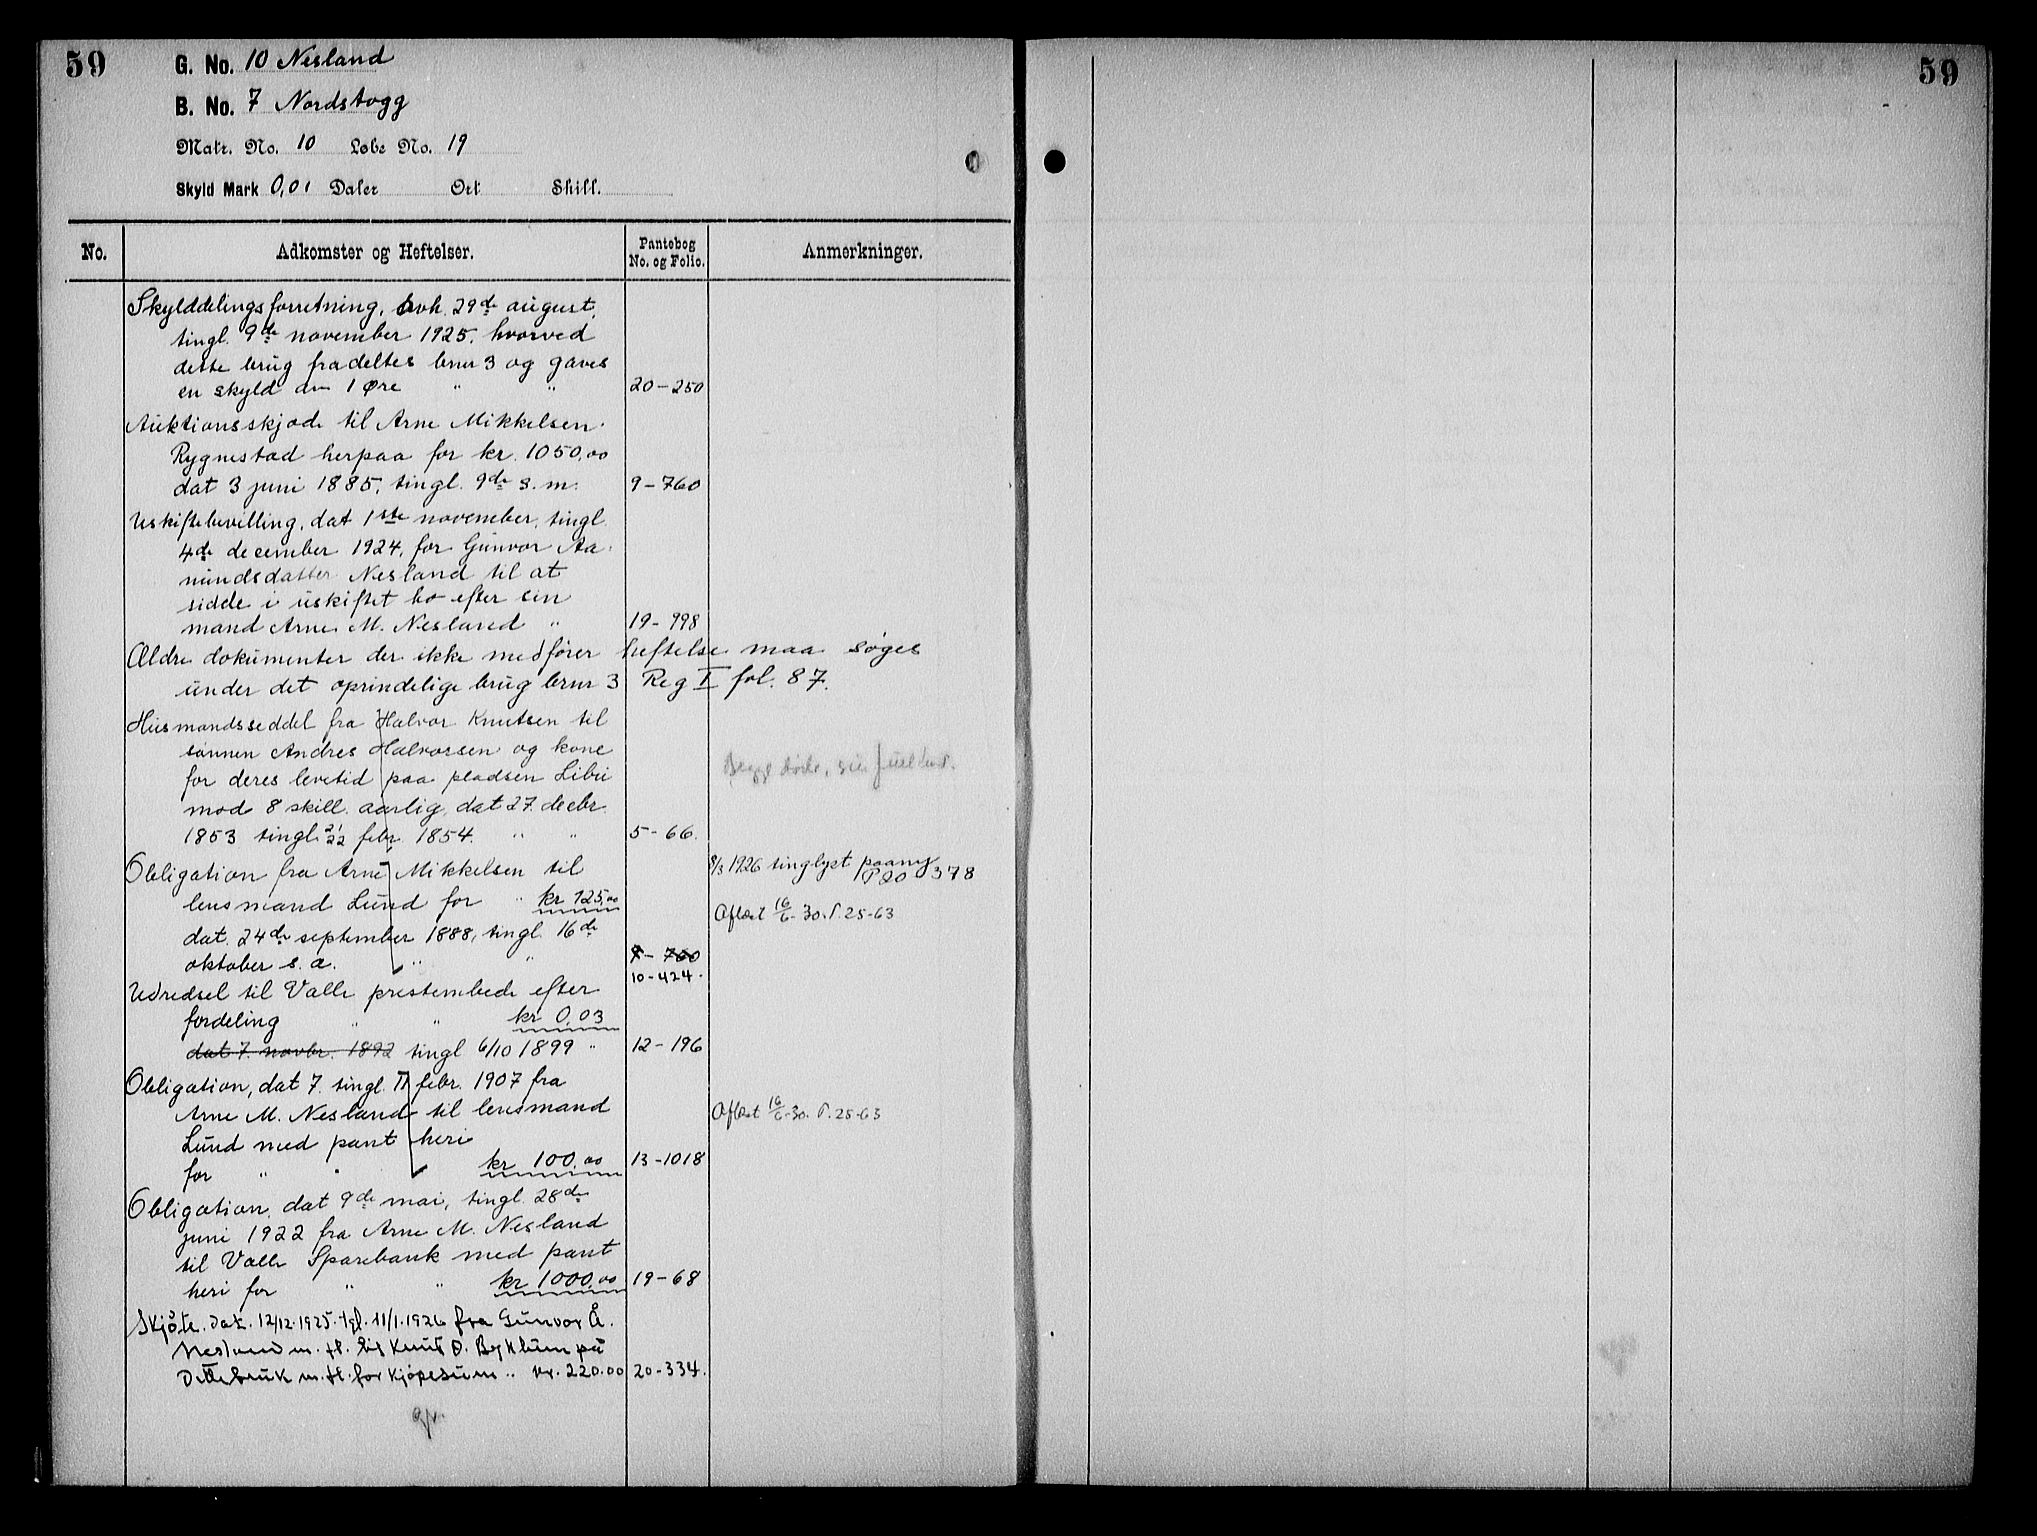 59
G. No. 10 Nesland
B. No. 7 Nordstogg
Matr. No. 10 Løbe No. 19
Skyld Mark 0,01 Daler Ort Skill.
No. Adkomster og Heftelser. Pantebog No. og Folio. Anmerkninger.
Skylddelingsforretning, avh. 29de august,
tingl. 9de november 1925, hvorved
dette brug fradeltes bnr 3 og gaves
en skyld av 1 Øre " " 20-250
Auktionsskjøde til Arne Mikkelsen
Rygnestad herpaa for kr. 1050,00
dat 3 juni 1885, tingl. 9de s.m. 9-760
Uskiftebevilling, dat 1ste november, tingl.
4de desember 1924, for Gunvor Aa-
nundsdatter Nesland til at
sidde i uskiftet bo efter sin
mand Arne M. Nesland " 19-998
Ældre dokumenter der ikke medfører heftelse maa søges
under det oprindelige brug bnr 3 Reg I fol. 87.
Husmandsseddel fra Halvor Knutsen til
sønnen Andres Halvorsen og kone
for deres levetid paa pladsen Libu
mod 8 skill. aarlig, dat 27. decbr.
1853 tingl. 21/22 febr. 1854. " " 5-66.
Obligation fra Arne Mikkelsen til 8/3 1926 tinglyst paany P 20 378
lensmand Lund for " kr 125,00 Aflæst 16/6-30. P. 25-63
dat. 24de september 1888, tingl. 16de
oktober s.a. " " 9-760
10-424.
Udredsel til Valle prestembede efter
fordeling " " kr 0,03
dat 7 novbr. 1892 tingl 6/10 1899 " 12-196
Obligation, dat 7. tingl. 11 febr. 1907 fra
Arne M. Nesland til lensmand Aflæst 16/6-30. P. 25-63
Lund med pant heri
for " " kr 100,00 13-1018
Obligation, dat 9de mai, tingl. 28de
juni 1922 fra Arne M. Nesland
til Valle Sparebank med pant
heri for " " kr 1000,00 19-68
Skjøte. dat. 12/12.1925. tgl. 11/1.1926 fra Gunvor Å.
Nesland m. fl. til Knut O. Bykhum på
Dette bruk m. fl. for kjøpesum .. kr. 220.00 20-334.
59